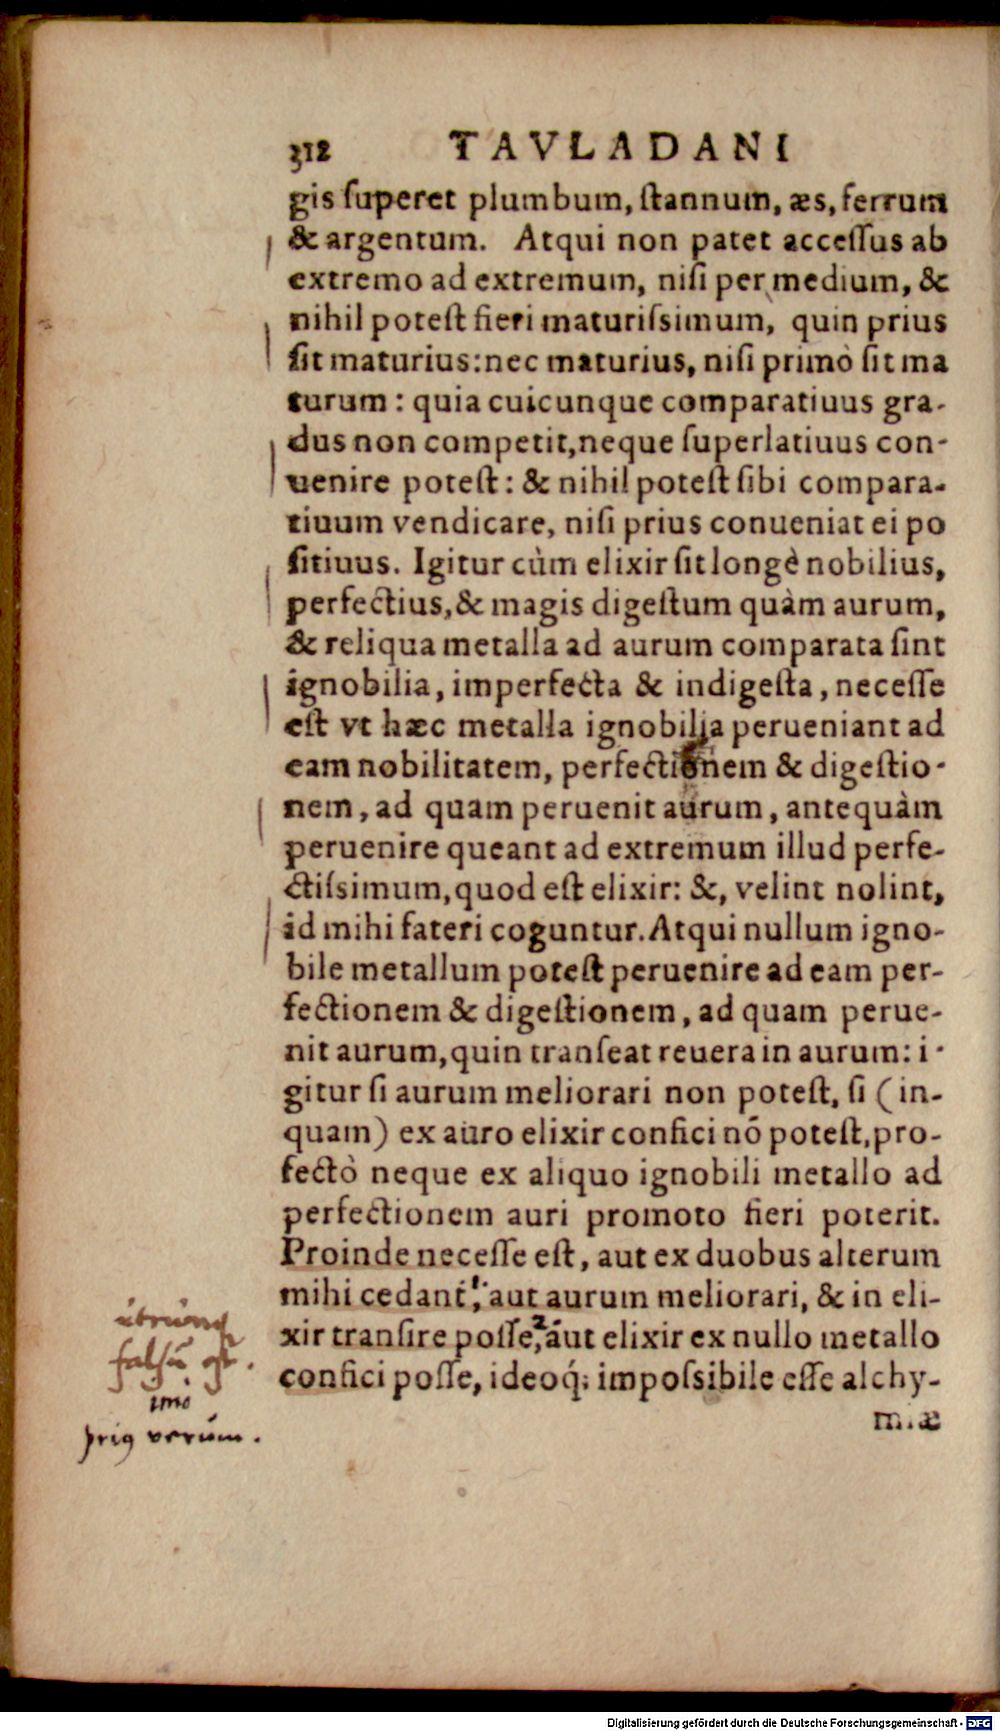 312 TAVLADANI
gis ſuperet plumbum, ſtannum, æs, ferrum
& argentum. Atqui non patet acceſſus ab
extremo ad extremum, niſi per medium, &
nihil poteſt fieri maturiſsimum, quin prius
ſit maturius: nec maturius, niſi primò ſit ma
turum: quia cuicunque comparatiuus gra-
dus non competit, neque ſuperlatiuus con-
uenire poteſt: & nihil poteſt ſibi compara-
tiuum vendicare, niſi prius conueniat ei po
ſitiuus. Igitur cùm elixir ſit longè nobilius,
perfectius, & magis digeſtum quàm aurum,
& reliqua metalla ad aurum comparata ſint
ignobilia, imperfecta & indigeſta, neceſſe
eſt vt hæc metalla ignobilia perueniant ad
eam nobilitatem, perfectionem & digeſtio-
nem, ad quam peruenit aurum, antequàm
peruenire queant ad extremum illud perfe-
ctiſsimum, quod eſt elixir: &, velint nolint,
id mihi fateri coguntur. Atqui nullum igno-
bile metallum poteſt peruenire ad eam per-
fectionem & digeſtionem, ad quam perue-
nit aurum, quin tranſeat reuera in aurum: i-
gitur ſi aurum meliorari non poteſt, ſi (in-
quam) ex auro elixir confici nõ poteſt, pro-
fectò neque ex aliquo ignobili metallo ad
perfectionem auri promoto fieri poterit.
Proinde neceſſe eſt, aut ex duobus alterum
mihi cedant, aut aurum meliorari, & in eli-
xir tranſire poſſe,² aut elixir ex nullo metallo
confici poſſe, ideoq́; impoſsibile eſſe alchy-
miæ
utrunq
falsũ est.
imò
prius verum.
Digitalisierung gefördert durch die Deutsche Forschungsgemeinschaft - DFG